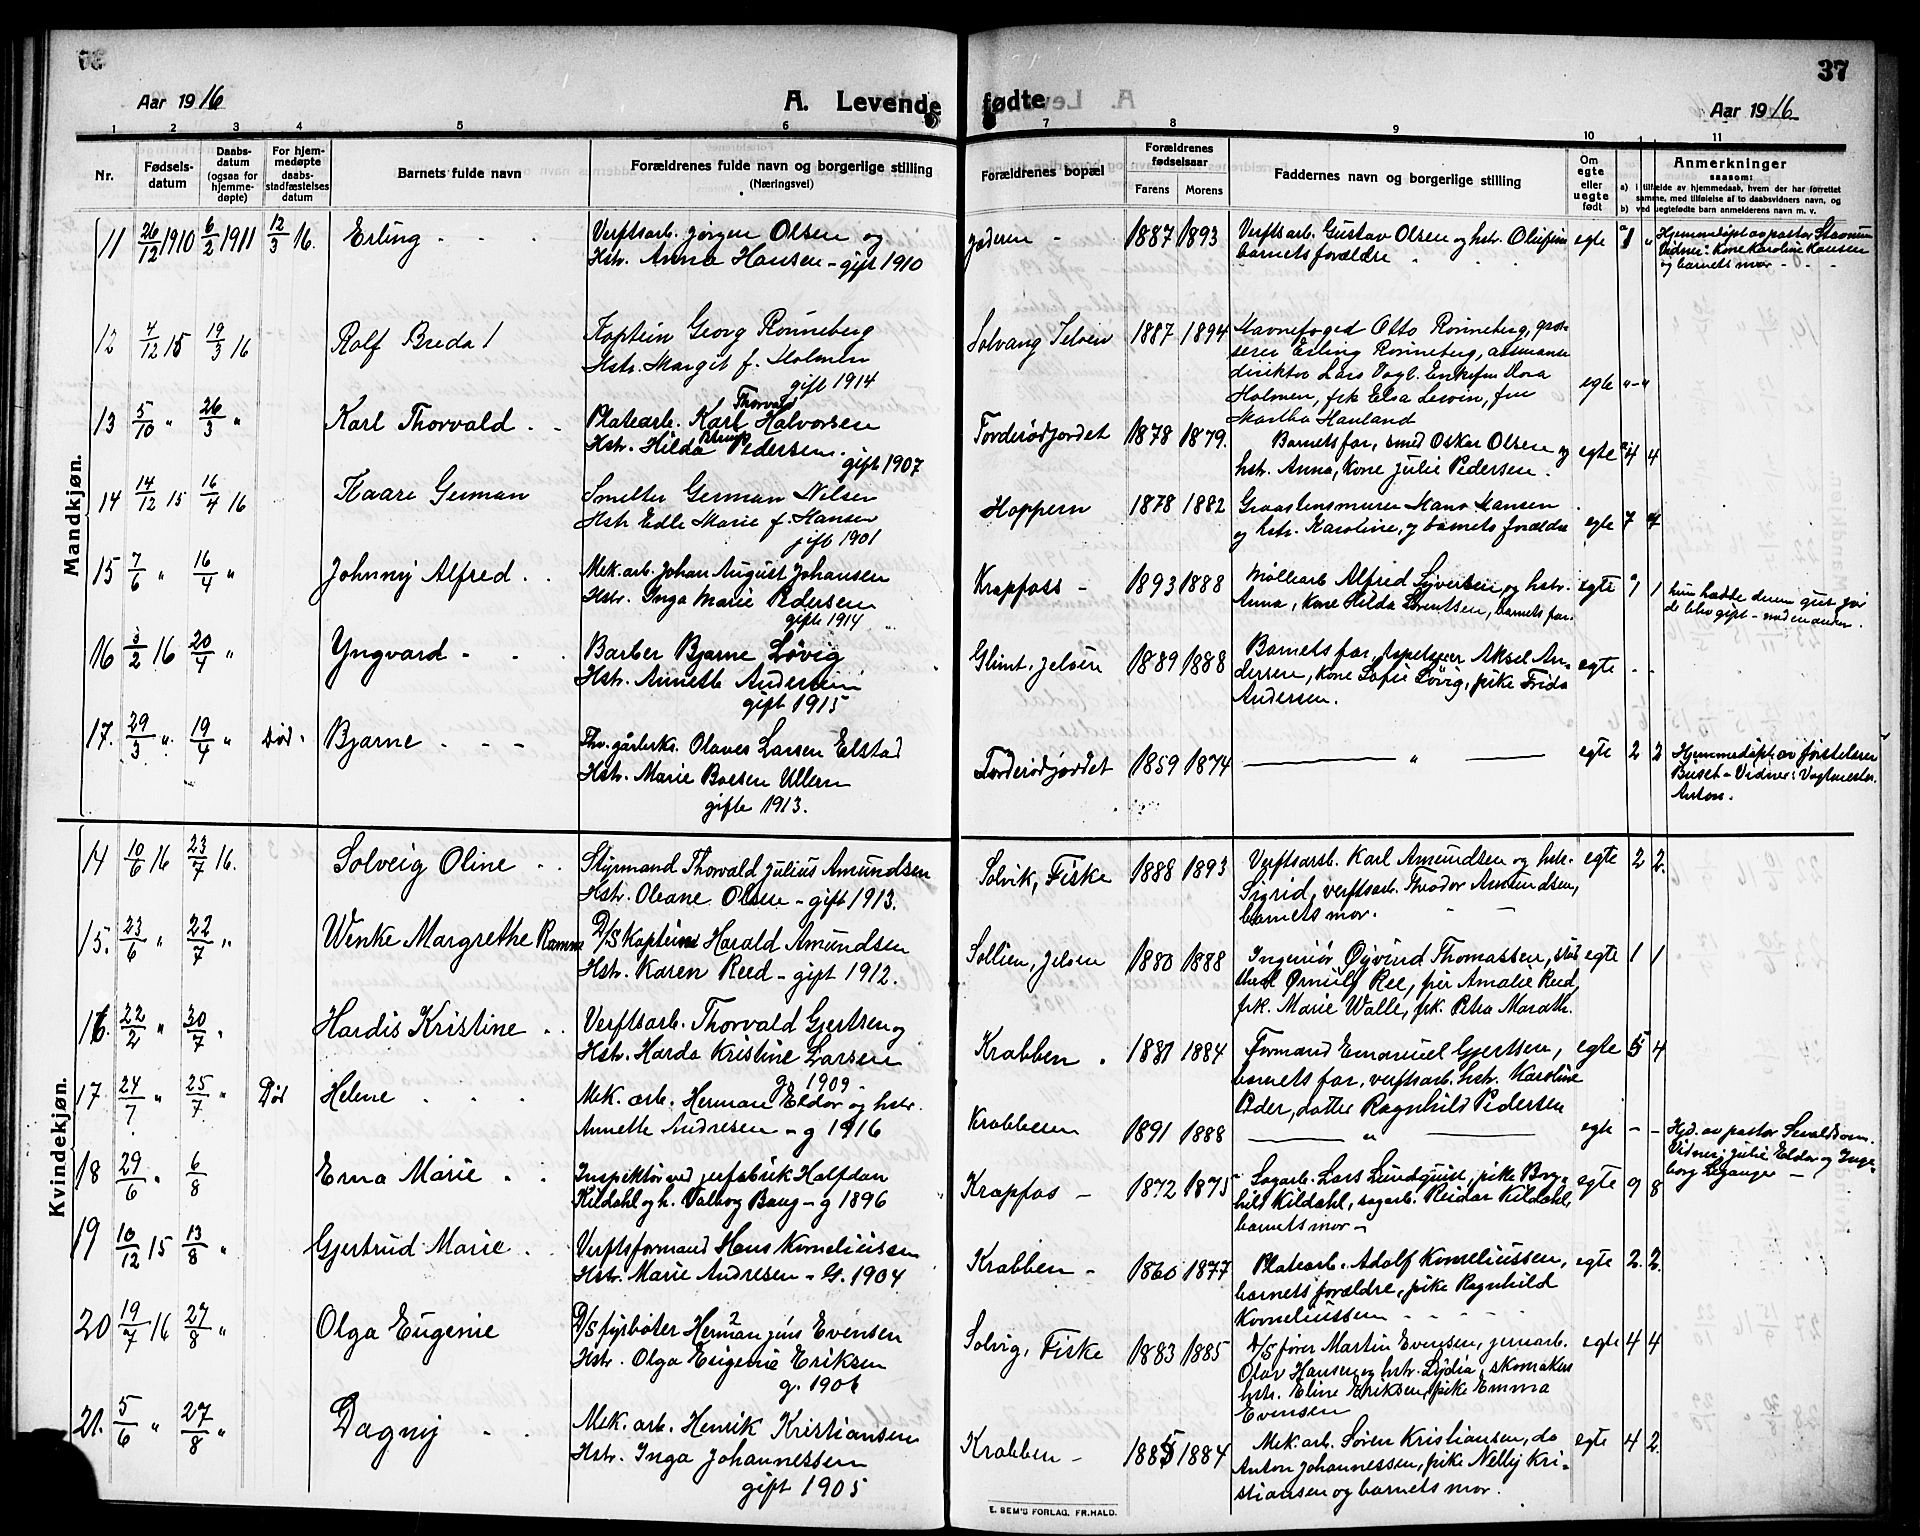 37
Aar 1916
A. Levende fødte
Aar 1916
1 2 3 4 5 6 7 8 9 10 11
Nr.
Fødsels-
datum
Daabs-
datum
(ogsaa for
hjemme-
døpte)
For hjem-
medøpte
daabs-
stadfæstelses
datum
Barnets fulde navn
Forældrenes fulde navn og borgerlige stilling
(Næringsvei)
Forældrenes bopæl
Forældrenes
fødselsaar
Farens Morens
Faddernes navn og borgerlige stilling
Om
egte
eller
uegte
født
Anmerkninger
saasom:
a) i tilfælde av hjemmedaab, hvem der har forrettet
samme, med tilføielse af to daabsvidners navn, og
b) ved uegtefødte barn anmelderens navn m. v.
Mandkjøn.
11 26/12 1910 6/2 1911 12/3 16. Erling
Verftsarb. Jørgen Olsen og
Hstr. Anna Hansen - gift 1910
Jøderen - 1887 1893
Verftsarb. Gustav Olsen og hstr. Olufine
barnets forældre
egte 1 "
Hjemmedøpt av pastor
Vidner: Kone Karoline Hansen
og barnets mor
12 4/12 15 19/3 16 Rolf Bredal
Kaptein Georg Rønneberg
Hstr. Margit f. Holmen
gift 1914
Solvang Jeløen 1887 1894
Havnefoged Otto Rønneberg, gros-
serer Erling Rønneberg,
direktør Lars Vogl. Enkefru Nora
Holmen, frk Elsa Lewin, fru
Martha Hauland
egte " - "
13 5/10 " 26/3 " Karl Thorvald
Thorvald
Platearb. Karl Halvorsen
Hstr. Hilda Pedersen.
gift 1907
Torderødjordet 1878 1879.
Barnets far, smed Oskar Olsen og
hstr. Anna, Kone Julie Pedersen.
egte 4 4
14 14/12 15 16/4 16 Kaare German
Smelter German Nilsen
Hstr Edle Marie f. Hansen
gift 1901
Hoppern 1878 1882
Graastensmurer Hans Hansen
og hstr. Karoline, og barnets forældre
egte 7 7
15 7/6 " 16/4 " Johnny Alfred
Mek. arb. Johan August Johansen
Hstr. Inga Marie Pedersen
gifte 1914
Krapfoss - 1893 1888
Møllearb Alfred Syversen og hstr.
Anna, Kone Hilda Lorentsen, barnets far.
egte 1 1
hun hadde denne gut før
de blev gift - med en anden.
16 3/2 16 20/4 " Yngvard
Barber Bjarne Løvig
Hstr. Annette Andersen
gift 1915
Glimt, Jeløen 1889 1888
Barnets far, tapetserer Aksel An-
dersen, Kone Sofie Løvig, pike Frida
Andersen.
egte - -
17. 29/3 " 19/4 " Død. Bjarne
Fhv. gårbrk. Olaves Larsen Elstad
Hstr. Marie Boesen Ullern
gifte 1913.
Torderødjordet 1859 1874
"
egte 2 2
Hjemmedøpt av frøstelærer
Buset - Vidner: Vagtmester
Anton.
Kvindekjøn.
14 10/6 16 23/7 16. Solveig Oline
Styrmand Thorvald Julius Amundsen
Hstr. Oleane Olsen - gift 1913.
Solvik, Fiske 1888 1893
Verftsarb. Karl Amundsen og hstr.
Sigrid, verftsarb. Theodor Amundsen,
barnets mor.
egte 2 2.
15. 23/6 " 22/7 " Wenke Margrethe Ramm
D/S Kaptein Harald Amundsen
Hstr. Karen Reed - gift 1912.
Sollien, Jeløen 1880 1888
Ingeniør Øyvind Thomassen,
Ørnulf Ree, fru Amalie Reed,
frk. Marie Walle, frk. Petra Marath.
egte 1 1
16. 22/2 " 30/7 " Hardis Kristine
Verftsarb. Thorvald Gjertsen og
Hstr. Harda Kristine Larsen
g. 1909
Krabben 1881 1884
Formand Emanuel Gjertsen,
barnets far, verftsarb. hstr. Karoline
Eder, datter Ragnhild Pedersen
egte 5 4
17. 24/7 " 25/7 " Død Helene
Mek. arb. Herman Eldor og hstr.
Annette Andresen - g 1916
Krabben 1891 1888
"
egte - -
Hjd. av pastor
Vidner: Julie Eldor og Inge-
borg
18 29/6 " 6/8 Erna Marie
Inspektør ved jernfabrik Halfdan
Kildahl og h. Valborg Baug - g 1896
Krapfos - 1872 1875
Sagarb. Lars Lundquist, pike Borg-
hild Kildahl, sagarb. Reidar Kildahl,
barnets mor -
egte 9 8
19 10/12 15 13/8 " Gjertrud Marie
Verftsformand Hans Korneliussen
Hstr. Marie Andresen - G. 1904
Krabben - 1860 1877
Platearb. Adolf Korneliussen,
barnets forældre, pike Ragnhild
Korneliussen
egte 2. 2.
20 19/7 16 27/8 " Olga Eugenie
D/S fyrbøter Herman Jens Evensen
Hstr. Olga Eugenie Eriksen
g. 1906
Solvig, Fiske 1883 1885
D/S fører Martin Evensen, jernarb.
Olav Hansen og hstr. Lydia, skomakers
hstr. Eline Eriksen, pike Emma
Evensen
egte 4 4
21. 5/6 " 27/8 " Dagny
Mek. arb. Henrik Kristiansen
Hstr. Inga Johannessen
gift 1905
Krabben - 1885 1884
Mek. arb. Søren Kristiansen, do
Anton Johannessen, pike Nelly Kri-
stiansen og barnets mor.
egte 4 2.
E. SEM'S FORLAG, FR.HALD.